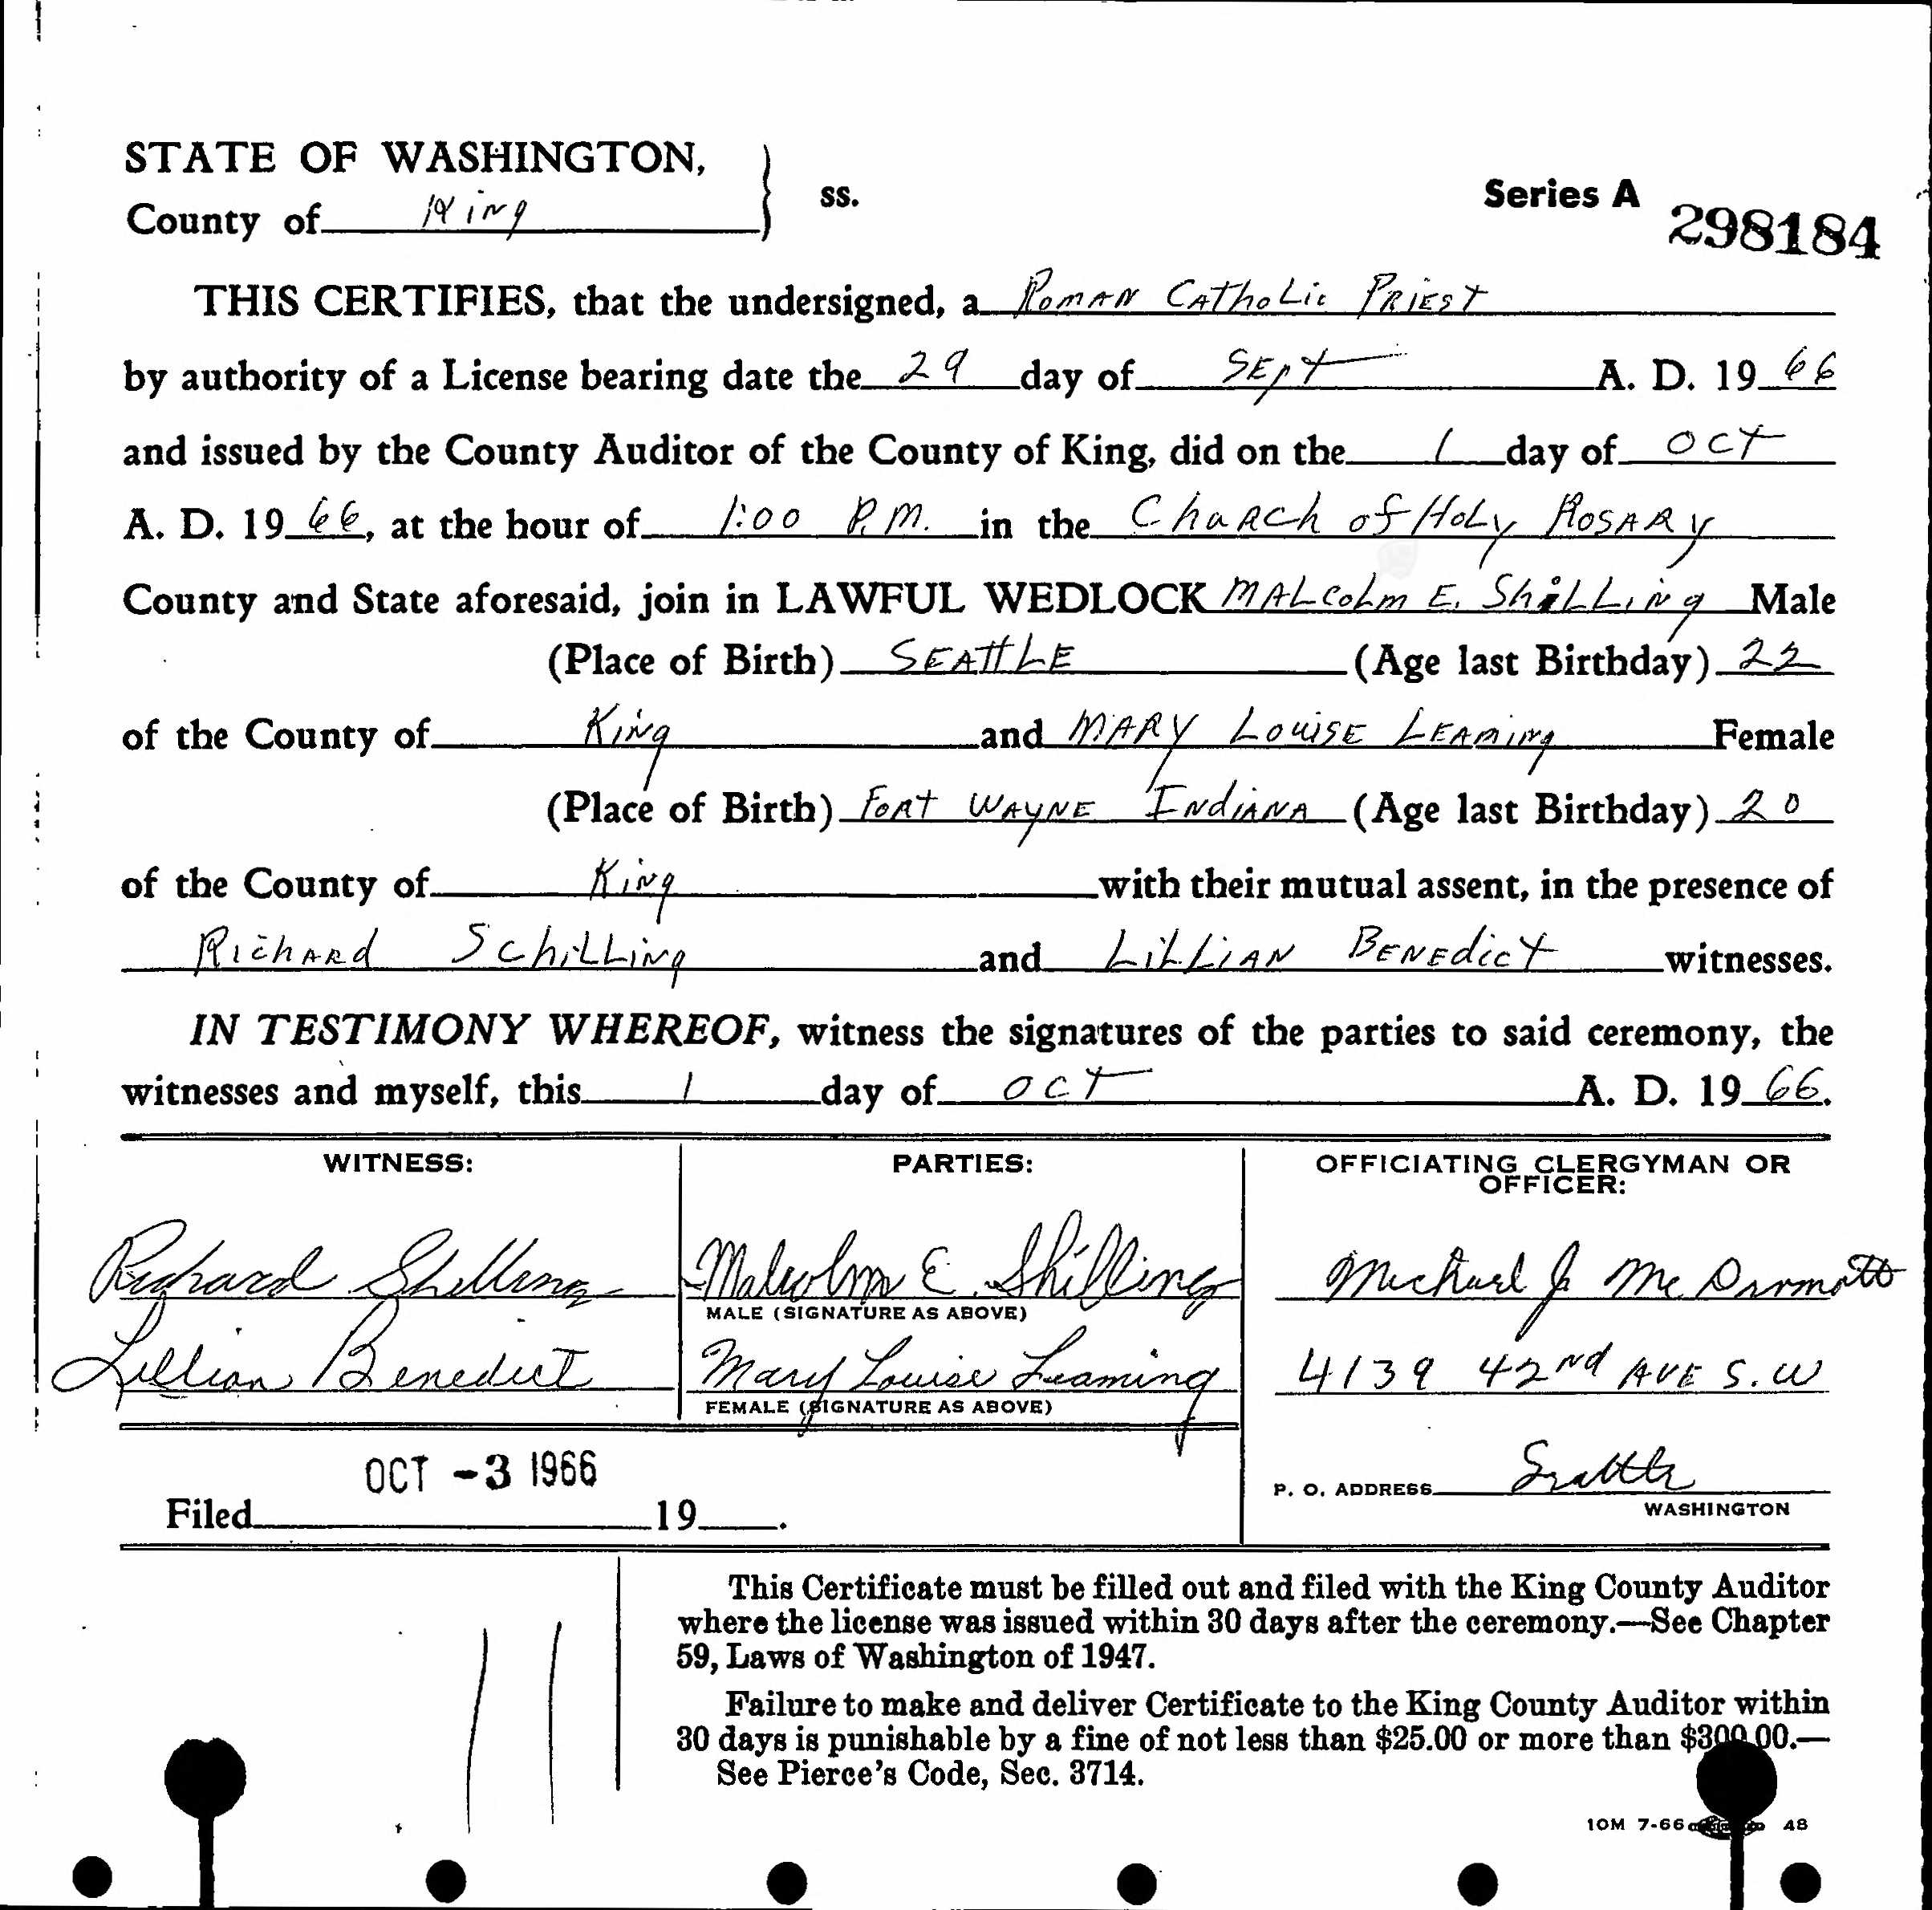 STATE OF WASHINGTON,
County of King } ss.
Series A 298184
THIS CERTIFIES, that the undersigned, a Roman Catholic Priest
by authority of a License bearing date the 29 day of Sept A. D. 19 66
and issued by the County Auditor of the County of King, did on the 1 day of Oct
A. D. 19 66, at the hour of 1:00 P.M. in the Church of Holy Rosary
County and State aforesaid, join in LAWFUL WEDLOCK Malcolm E. Shilling Male
(Place of Birth) Seattle (Age last Birthday) 22
of the County of King and Mary Louise Leaming Female
(Place of Birth) Fort Wayne Indiana (Age last Birthday) 20
of the County of King with their mutual assent, in the presence of
Richard Schilling and Lillian Benedict witnesses.
IN TESTIMONY WHEREOF, witness the signatures of the parties to said ceremony, the
witnesses and myself, this 1 day of Oct A. D. 19 66.
WITNESS:
Richard Shilling
Lillian Benedict
PARTIES:
Malcolm E. Shilling
MALE (SIGNATURE AS ABOVE)
Mary Louise Leaming
FEMALE (SIGNATURE AS ABOVE)
OFFICIATING CLERGYMAN OR
OFFICER:
Michael J. McDermott
4139 42nd Ave S.W
P. O. ADDRESS Seattle
WASHINGTON
OCT -3 1966
Filed 19 .
This Certificate must be filled out and filed with the King County Auditor
where the license was issued within 30 days after the ceremony.—See Chapter
59, Laws of Washington of 1947.
Failure to make and deliver Certificate to the King County Auditor within
30 days is punishable by a fine of not less than $25.00 or more than $300.00.—
See Pierce's Code, Sec. 3714.
10M 7-66 48